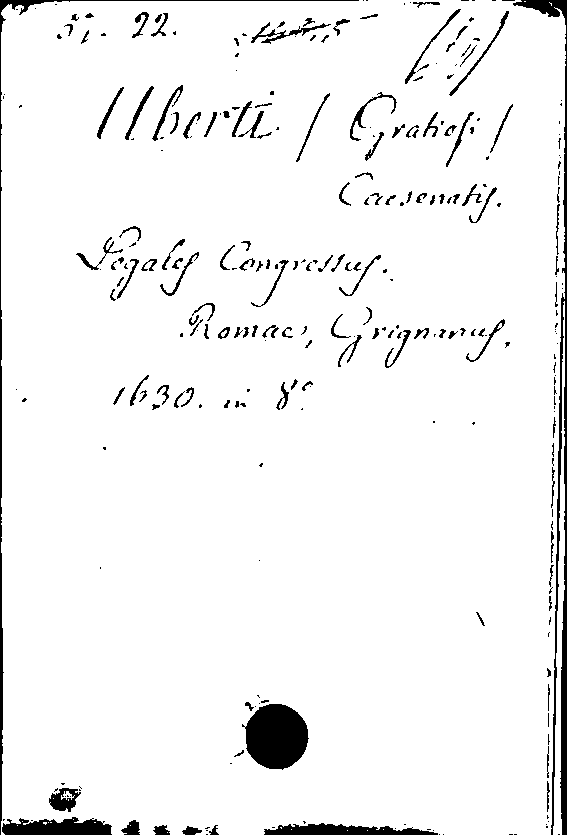 51. 22.
Uberti / Gratiosi /
Caesenatis.
Legales Congressus.
Romae, Grignanus.
1630. in 8°